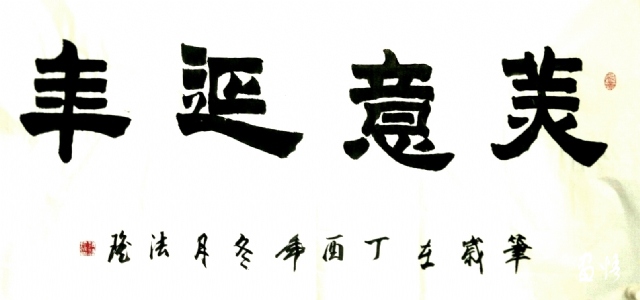 美意延年
筆歲在丁酉年冬月法隆